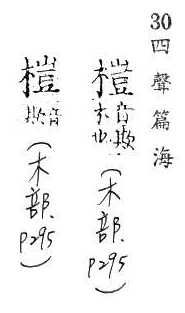 30 四聲篇海
榿 音欺木也 (木部. P295)
榿 音欺 (木部. P295)